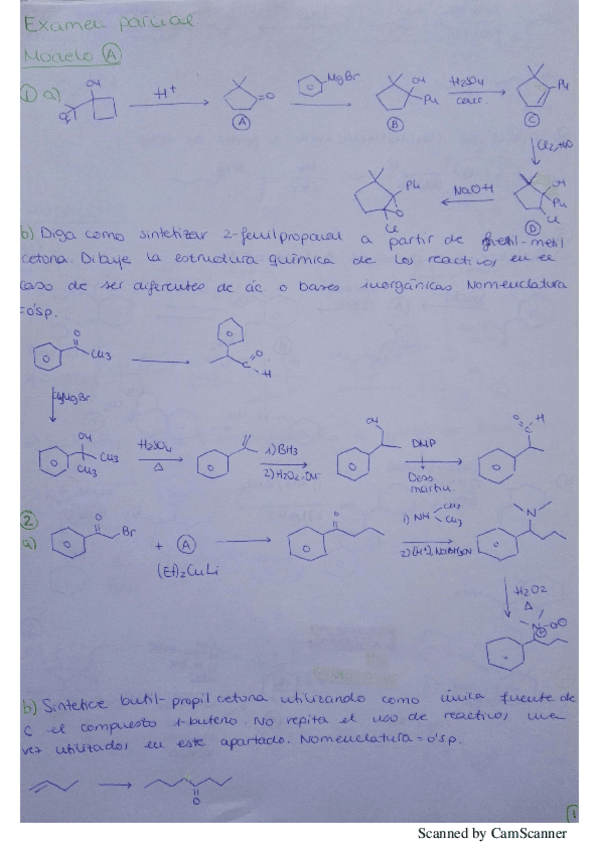 Examen parcial
Modelo A
1 a) OH H+ A MgBr B OH Ph H2SO4 conc. C Ph
Cl2, H2O
Ph O Cl NaOH D OH Ph Cl
b) Diga como sintetizar 2-fenilpropanal a partir de fenil-metil
cetona. Dibuje la estructura química de los reactivos en el
caso de ser diferentes de ác o bases inorgánicas. Nomenclatura
=0'5p.
O CH3 O H
CH3MgBr
OH CH3 CH3 H2SO4 Δ 1) BH3 2) H2O2, OH- OH DMP Dess martin O H
2
a) O Br + A (Et)2CuLi O 1) NH CH3 CH3 2) (H+), NaBH3CN N
H2O2
Δ
N
b) Sintetice butil-propil cetona utilizando como única fuente de
C el compuesto 1-buteno. No repita el uso de reactivos una
vez utilizados en este apartado. Nomenclatura = 0'5p.
O
1
Scanned by CamScanner